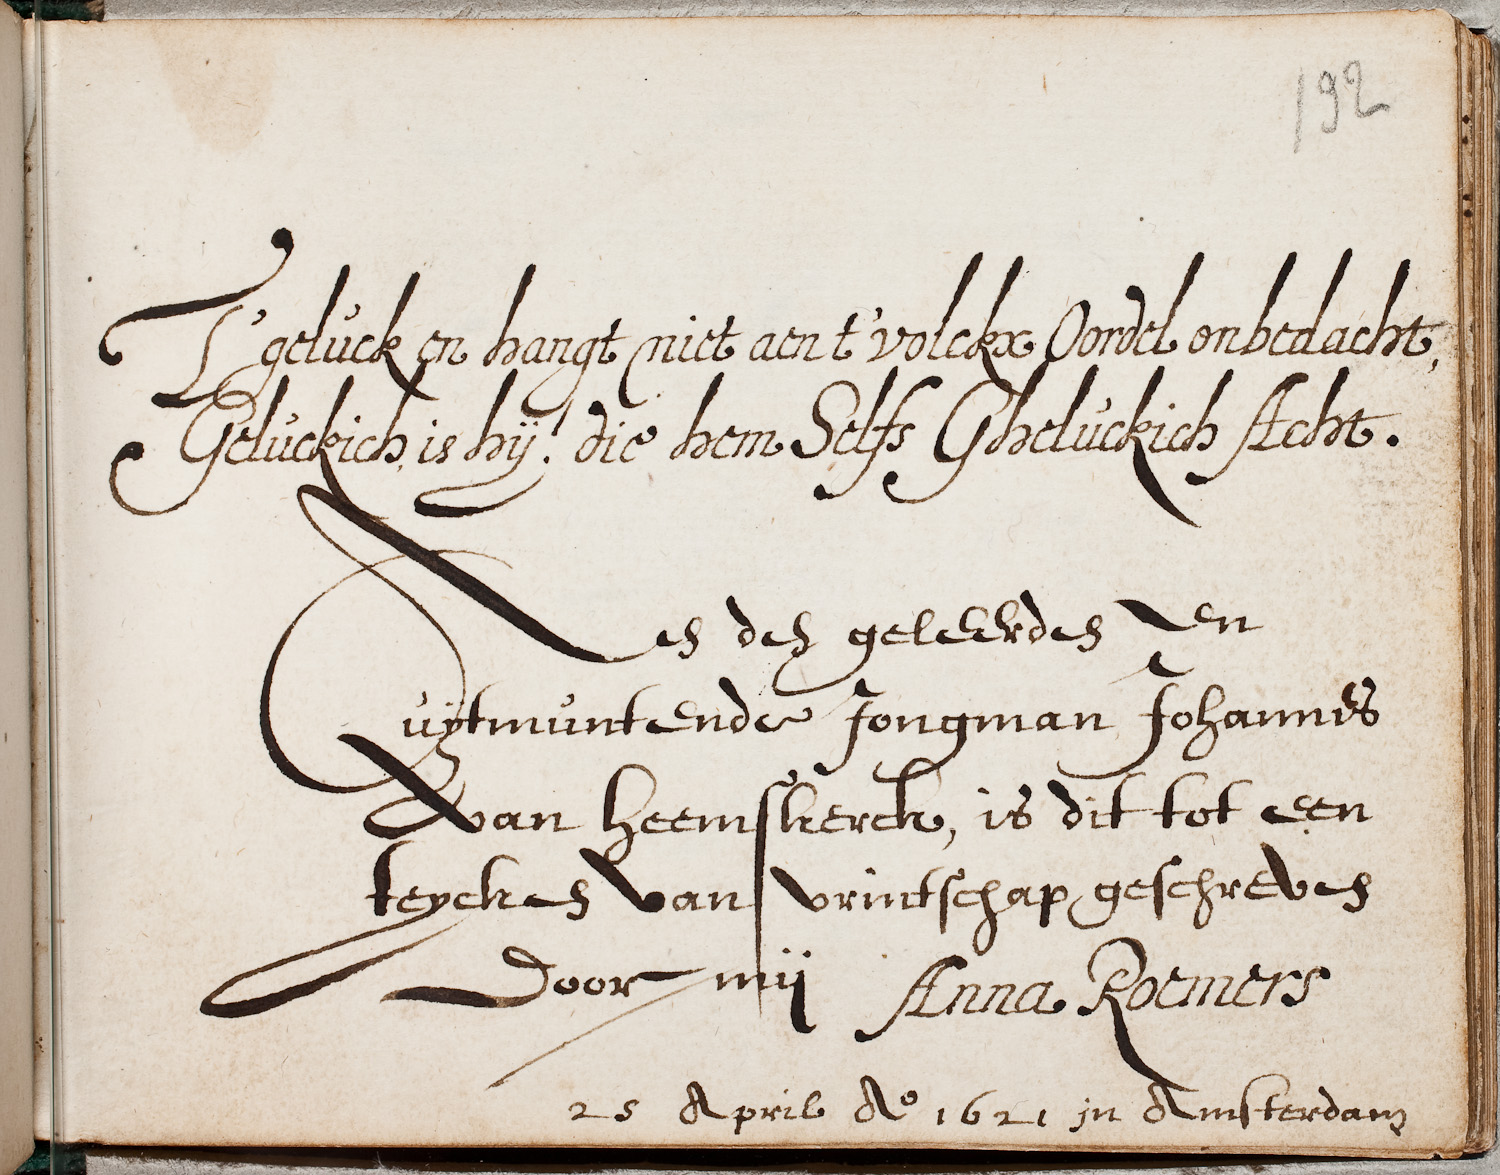 192
T'geluck en hangt niet aen t'volckx Oordel onbedacht,
Geluckich is hij! die hem Selfs Gheluckich Acht.
en den geleerden en
uytmuntende Jongman Johannes
van heemskerck, is dit tot een
teycken van vrintschap geschreven
Door mij Anna Roemers
25 April Aº 1621 in Amsterdam